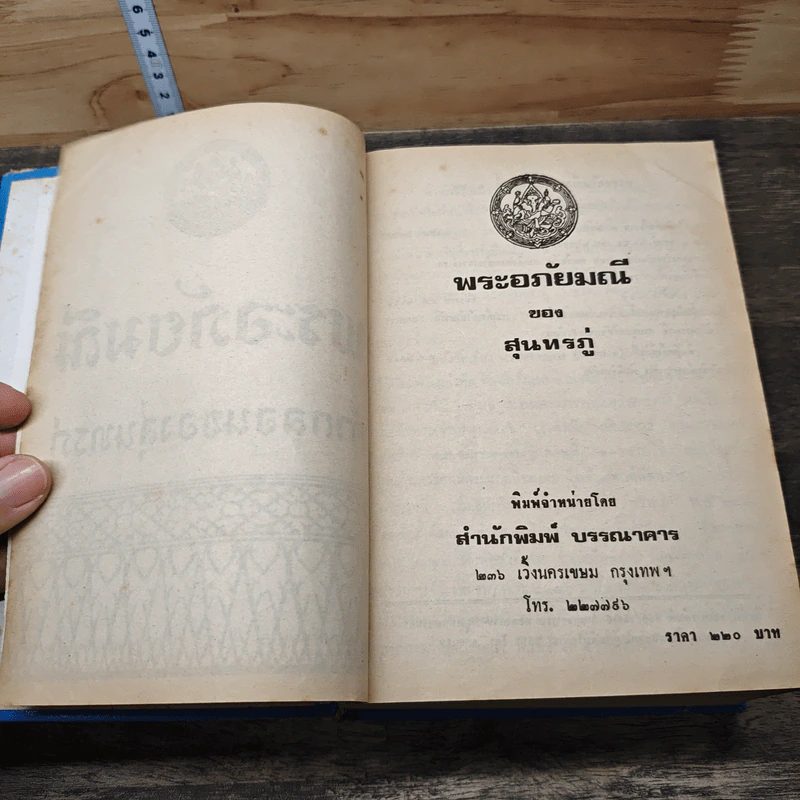 6 5 4 3 2
พระอภัยมณี
ของ
สุนทรภู่
พิมพ์จำหน่ายโดย
สำนักพิมพ์ บรรณาคาร
๒๓๖ เวิ้งนครเขษม กรุงเทพฯ
โทร. ๒๒๗๗๙๖
ราคา ๒๒๐ บาท